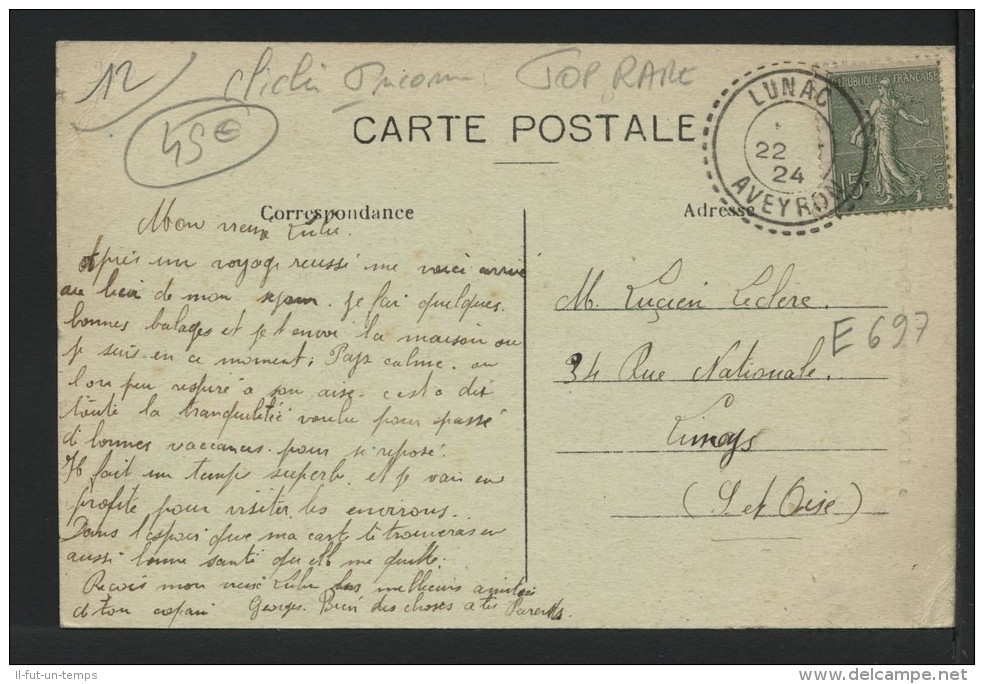 12
cliché TOP RARE
45€
CARTE POSTALE
LUNAC
22
24
AVEYRON
RÉPUBLIQUE FRANÇAISE
15
POSTES
Correspondance
Adresse
Mon vieux Lulu.
Après un voyage reussi me voici arrivé
au lieu de mon sejour. Je fai quelques
bonnes balages et je t'envoi la maison ou
je suis en ce moment. Pays calme. ou
l'on peu respiré a son aise. c'est a dit
toute la tranquilitée voulu pour passé
d bonnes vaccances. pour se reposé.
Il fait un temps superbe. et je vais en
profité pour visiter les environs.
Dans l'espoir que ma carte te trouveras en
aussi bonne santé qu'elle me quitte.
Recois mon vieux Lulu les meilleurs amitiés
de ton copain Georges. Bien des choses a tes Parents
M. Lucien Leclère.
34 Rue Nationale.
E 697
Limays
(S. et Oise)
Il-fut-un-temps
delcampe.net